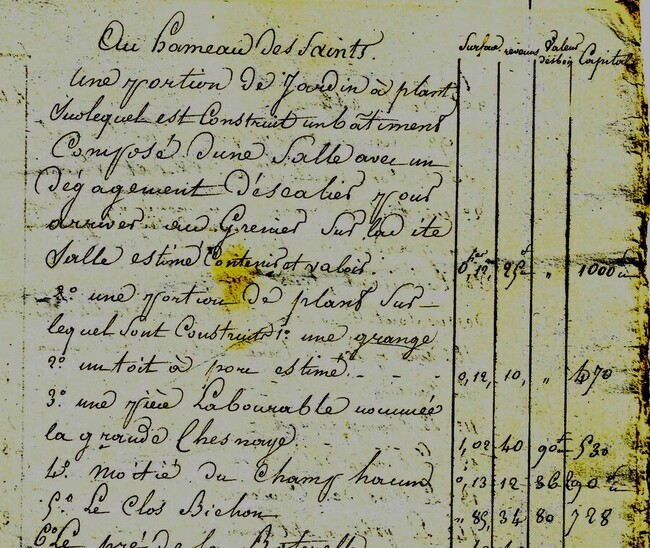 Au hameau des Saints.
Surface revenus Valeur des bois Capital
une portion de Jardin à plant
Surlequel est Construit un bâtiment
Composé dune Salle avec un
dégagement déscalier pour
arriver au Grenier Sur la dite
Salle estimé Contenir et valoir 0, 12, 25 " 1000
2º une portion de plant Sur-
lequel Sont Construits 1º une grange
2º un toit à porc estimé 0, 12, 10, " 470
3º une pièce Labourable nommée
la grande Chesnaye 1, 02 40 90 530
4º moitié du Champ 0, 13 12 36 290
5º Le Clos Bichon " 85, 34 80 728
6º Le pré de la